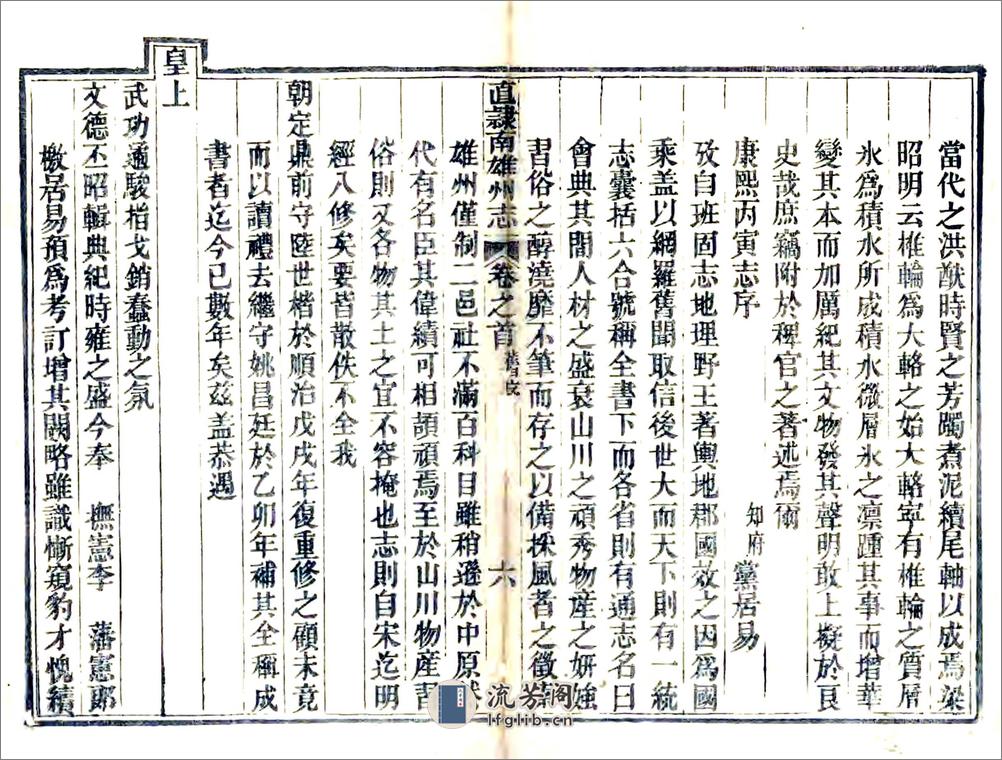 當代之洪猷時賢之芳躅煮泥續尾軸以成焉梁
昭明云椎輪爲大輅之始大輅寧有椎輪之質層
氷爲積水所成積水微層氷之凛踵其事而增華
變其本而加厲紀其文物發其聲明敢上擬於良
史哉庶竊附於稗官之著述焉爾
康熙丙寅志序 知府 黨居易
攷自班固志地理野王著輿地郡國效之因爲國
乘盖以網羅舊聞取信後世大而天下則有一統
志囊括六合號稱全書下而各省則有通志名曰
會典其間人材之盛衰山川之頑秀物産之妍媸
習俗之醇澆靡不筆而存之以備採風者之徵
直隸南雄州志 卷之首 舊序 六
雄州僅制二邑社不滿百科目雖稍遜於中原
代有名臣其偉績可相頡頏焉至於山川物産習
俗則又各物其土之宜不容掩也志則自宋迄明
經八修矣要皆散佚不全我
朝定鼎前守陸世楷於順治戊戌年復重修之顧未竟
而以讀禮去繼守姚昌廷於乙卯年補其全稱成
書者迄今已數年矣兹盖恭遇
皇上
武功遹駿枱戈銷蠢動之氛
文德丕昭輯典紀時雍之盛今奉 撫憲李 藩憲郎
檄居易預爲考訂增其闕略雖識慚窺豹才愧續
流芳閣
lfglib.cn